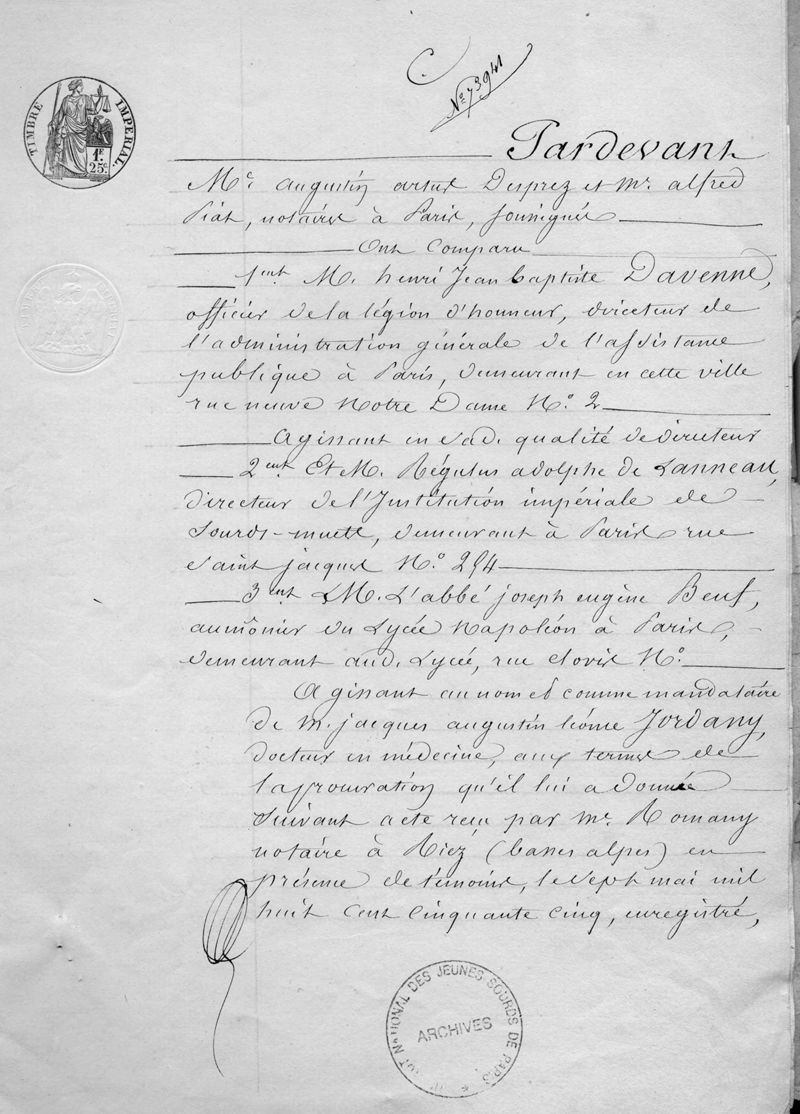 C
N° 73941
TIMBRE IMPÉRIAL
1F.
25c.
Pardevant
Me augustin artus Desprez et Me alfred
Piat, notaires à Paris, soussignés
Ont Comparu
1ent M. henri Jean baptiste Davenne,
officier de la légion d'honneur, directeur de
l'administration générale de l'assistance
publique à Paris, demeurant en cette ville
rue neuve Notre Dame N° 2
Agissant en sad. qualité de directeur
2ent Et M. Régulus adolphe de Lanneau,
directeur de l'Institution impériale de
Sourds-muets, demeurant à Paris rue
Saint jacques N° 254
3ent M. L'abbé joseph eugène Beuf,
aumônier du Lycée Napoléon à Paris,
demeurant aud. Lycée, rue clovis N°.
Agissant au nom et comme mandataire
de M. jacques augustin Côme Jordany,
docteur en médecine, aux termes de
la procuration qu'il lui a donnée
suivant acte reçu par Me Romany
notaire à Riez (basses alpes) en
présence de témoins, le sept mai mil
huit cent cinquante cinq, enregistré,
INSTITUT NATIONAL DES JEUNES SOURDS DE PARIS
ARCHIVES